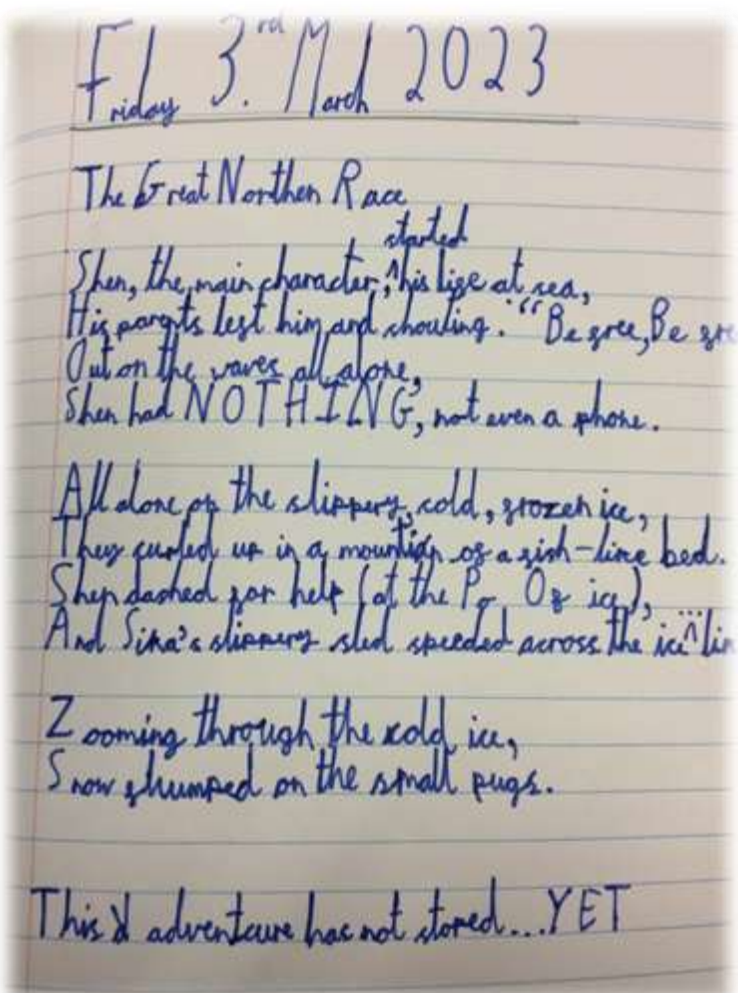 Friday 3rd. March 2023
The Great Northen Race
Shen, the main character, started his life at sea,
His parents left him and shouting. "Be free, Be fre
Out on the waves all alone,
Shen had NOTHING, not even a phone.
All alone on the slippery, cold, frozen ice,
They curled up in a mountian of a fish-line bed.
Shen dashed for help (at the Po Of ice),
And Sika's slippery sled speeded across the ice... lin
Zooming through the cold ice,
Snow flumped on the small pugs.
This adventeure has not stored...YET